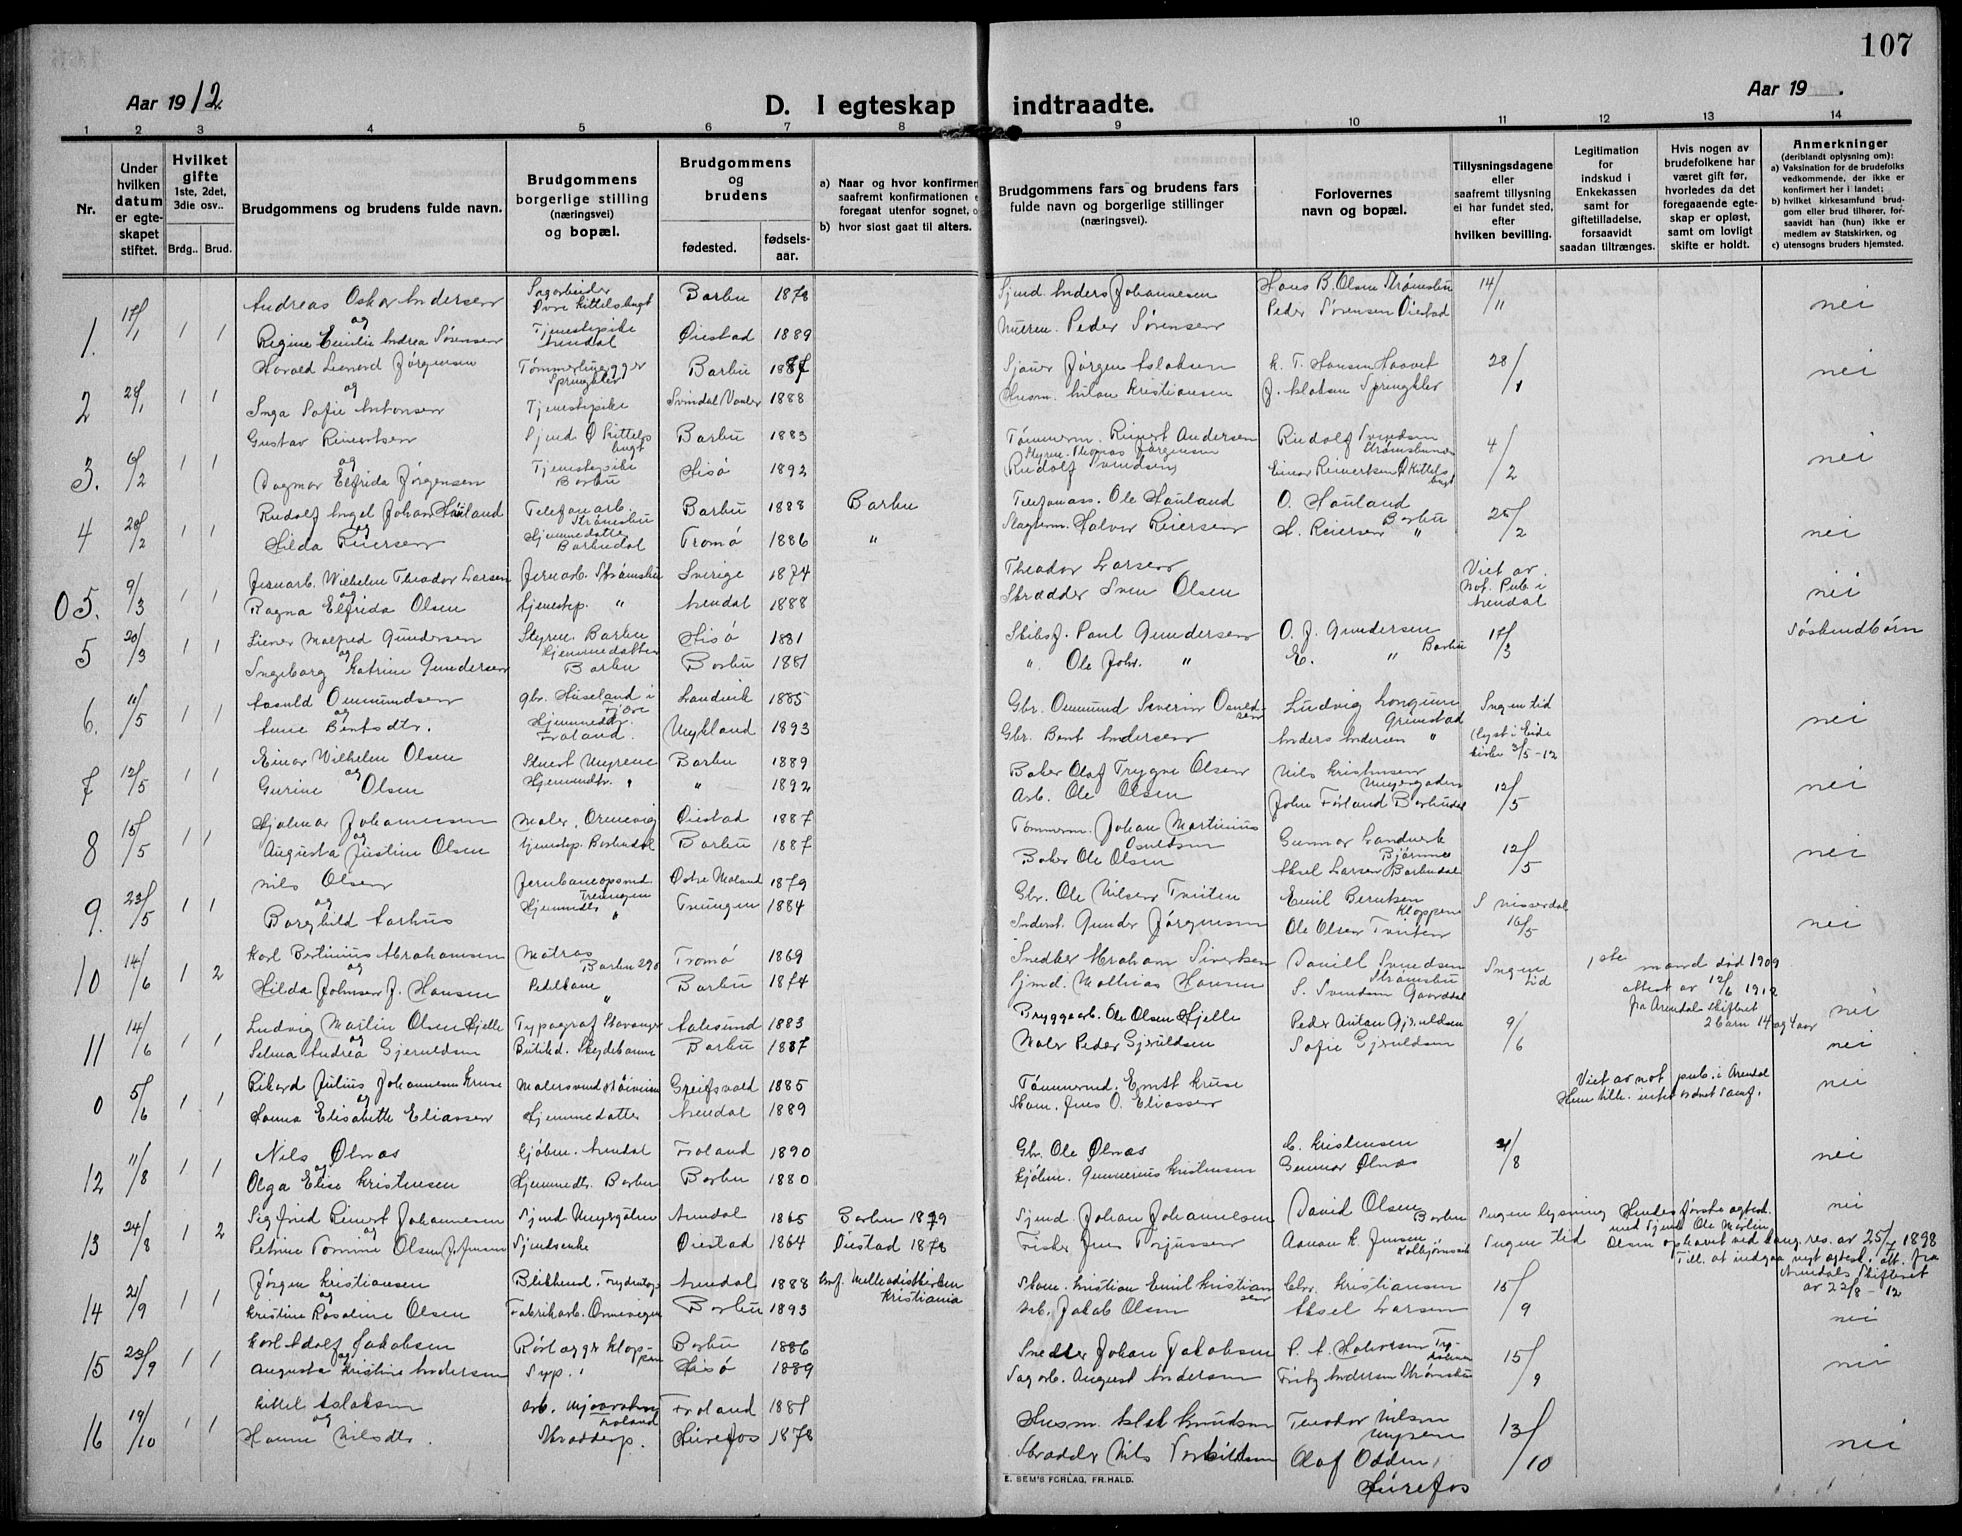 107
Aar 1912.
D. I egteskap indtraadte.
Aar 19 .
1 2 3 4 5 6 7 8 9 10 11 12 13 14
Nr.
Under hvilken datum er egteskapet stiftet.
Hvilket gifte
1ste, 2det, 3die osv..
Brdg.. Brud.
Brudgommens og brudens fulde navn.
Brudgommens borgerlige stilling (næringsvei) og bopæl.
Brudgommens og brudens
fødested.
fødsels-aar.
a) Naar og hvor konfirmer
saafremt konfirmationen e
foregaat utenfor sognet, o
b) hvor sidst gaat til alters.
Brudgommens fars og brudens fars fulde navn og borgerlige stillinger (næringsvei).
Forlovernes navn og bopæl.
Tillysningsdagene eller saafremt tillysning ei har fundet sted, efter hvilken bevilling.
Legitimation for indskud i Enkekassen samt for giftetilladelse, forsaavidt saadan tiltrænges.
Hvis nogen av brudefolkene har været gift før, hvorledes da det foregaaende egteskap er opløst, samt om lovligt skifte er holdt.
Anmerkninger
(deriblandt oplysning om):
a) Vaksination for de brudefolks vedkommende, der ikke er konfirmert her i landet;
b) hvilket kirkesamfund brudgom eller brud tilhører, forsaavidt han (hun) ikke er medlem av Statskirken, og
c) utensogns bruders hjemsted.
1. 17/1 1 1 Andreas Oskar Andersen Sagarbeider Øvre Kittelsbugt Barbu 1878 Sjmd. Anders Johannesen Hans B. Olsen Strømsbu 14/11 nei
og
Regine Emilie Andrea Sørensen Tjenestepike Arendal Øiestad 1889 Peder Sørensen Peder Sørensen Øiestad
2 28/1 1 1 Harald Leonard Jørgensen Barbu 1887 Sjauer Jørgen Aslaksen K. T. Hansen 28/1 nei
og
Inga Sofie Antonsen Tjenestepike 1888 Husm. Kristiansen J. Aslaksen
3. 6/2 1 1 Gustav Reinertsen Sjmd. Ø Kittelsbugt Barbu 1883 Tømmerm. Reinert Andersen Rudolf Svendsen 4/2 nei
og
Dagmar Elfrida Jørgensen Tjenestepike Barbu Hisø 1892 Styrm. Thomas Jørgensen Rudolf Svendsen Einar Reinertsen Ø Kittelsbugt
4 28/2 1 1 Rudolf Angel Johan Hauland Telefonarb. Strømsbu Barbu 1888 Barbu Telefonass. Ole Hauland O. Hauland Barbu 25/2 nei
og
Hilda Reiersen Hjemmedatter Barbudal Tromø 1886 " Halvor Reiersen H. Reiersen "
05. 9/3 1 1 Jernarb. Wilhelm Theodor Larsen Jernarb. Strømsbu Sverige 1874 Theodor Larsen Viet av Not. Pub. i Arendal nei
og
Ragna Elfrida Olsen tjenestep. " Arendal 1888 Skrædder Sven Olsen
5 20/3 1 1 Malfred Gundersen Styrm. Barbu Hisø 1881 Skibsf. Paul Gundersen O. J. Gundersen Barbu 17/3 Søskendbørn
og
Ingeborg Katrine Gundersen Hjemmedatter Barbu Barbu 1881 " Ole Johr. " E. "
6. 11/5 1 1 Aasuld Ommundsen gbr. Huseland i Fjære Landvik 1885 Gbr. Ommund Severin Ludvig Longum Grimstad Ingen tid nei
og
Anne Bentsdtr. Hjemmedtr. Froland. Mykland 1893 Gbr. Bent Andersen Anders Andersen " lyst i Eide kirke 3/5-12
7 12/5 1 1 Einar Wilhelm Olsen Barbu 1889 Baker Olaf Trygve Olsen Nils Kristensen 12/5 nei
og
Gurine Olsen Hjemmedtr. " " 1892 Arb. Ole Olsen John Førland Barbudal
8 15/5 1 1 Hjalmar Johannesen Maler. Ormevig Øiestad 1887 Tømmerm. Johan Martinius Gunnar Landverk 12/5 nei
og
Augusta Justine Olsen tjenestep. Barbudal Barbu 1887 Baker Ole Olsen Aksel Larsen Barbudal
9. 23/5 1 1 Nils Olsen Jernbaneopsynd Treungen Østre Moland 1879 Gbr. Ole Nilsen Tveiten Emil Berntsen Kloppen i Nissedal 16/5 nei
og
Borghild Aarhus Hjemmedtr " Treungen 1884 Inderst. Gunder Jørgensen Ole Olsen Tveiten
10 14/6 1 2 Karl Bertinius Abrahamsen Matros Barbu 290 Tromø 1869 Snedker Abraham Sivertsen Daniel Svendsen Strømsbu Ingen tid 1ste mand død 1909 attest av 12/6 1912 fra Arendals Skifteret 2 barn 14 og 4 aar nei
og
Hilda Johnsen f. Hansen " Barbu 1874 Sjmd. Mathias Hansen S. Svendsen
11 14/6 1 1 Ludvig Martin Olsen Hjelle Typograf Stavanger Aalesund 1883 Bryggearb. Ole Olsen Hjelle Peder Anton Gjeruldsen 9/6 nei
og
Selma Andrea Gjeruldsen Butikd. Skydebanen Barbu 1887 Maler Peder Gjeruldsen Sofie Gjeruldsen
0 5/6 1 1 Rikard Julius Johannesen Kruse Malersvend Greifswald 1885 Tømmermd. Ernst Kruse Viet av not. pub. i Arendal nei
og
Hanna Elisabette Eliassen Hjemmedatter Arendal 1889 Skom. Jens O. Eliassen
12 11/8 1 1 Nils Ølnes kjøbm. Arendal Froland 1890 Gbr. Ole Ølnes C. Kristensen 4/8 nei
og
Olga Elise Kristensen Hjemmedtr. Barbu Barbu 1880 kjøbm. Gunnerius Kristensen Gunnar Ølnes
13 24/8 1 2 Sigfred Reinert Johannesen Sjmd Arendal 1865 Barbu 1879 Sjmd. Johan Johannesen David Olsen Barbu Ingen lysning Hendes første egtesk. med Sjmd Ole Martin nei
og
Petrine Tomine Olsen f. Jensen Sjmdsenke Øiestad 1864 Øiestad 1878 Fisker Jens Torjussen K. Jensen Kolbjørnsvik Ingen tid Olsen ophævet ved kong. res. av 25/7 1898
Till. at indgaa nyt egtesk. i att. fra Arendals Skifteret av 22/8-12
14 21/9 1 1 Jørgen Kristiansen Arendal 1888 Konf. Methodistkirken Kristiania Skom. Kristian Emil Kristiansen Chr. Kristiansen 15/9 nei
og
Kristine Rosaline Olsen Fabrikarb. Ormevigen Barbu 1893 Arb. Jakob Olsen Aksel Larsen
15 23/9 1 1 Karl Adolf Jakobsen Rørlægger Kloppen Barbu 1886 Snedker Johan Jakobsen P. A. Halvorsen 15/9 nei
og
Augusta Kristine Andersen Syp. " Hisø 1889 Sagarb. August Andersen Fritz Andersen Strømsbu
16 19/10 1 1 Kittil Aslaksen arb. Froland Froland 1881 Husm. Aslak Knudsen Teodor Nilsen Myrene 13/10 nei
og
Hanne Nilsdtr. Skrædderp. Hurefos 1878 Skrædder Nils Terkildsen Olaf Odden, Hurefos
E. SEM'S FORLAG, FR.HALD.